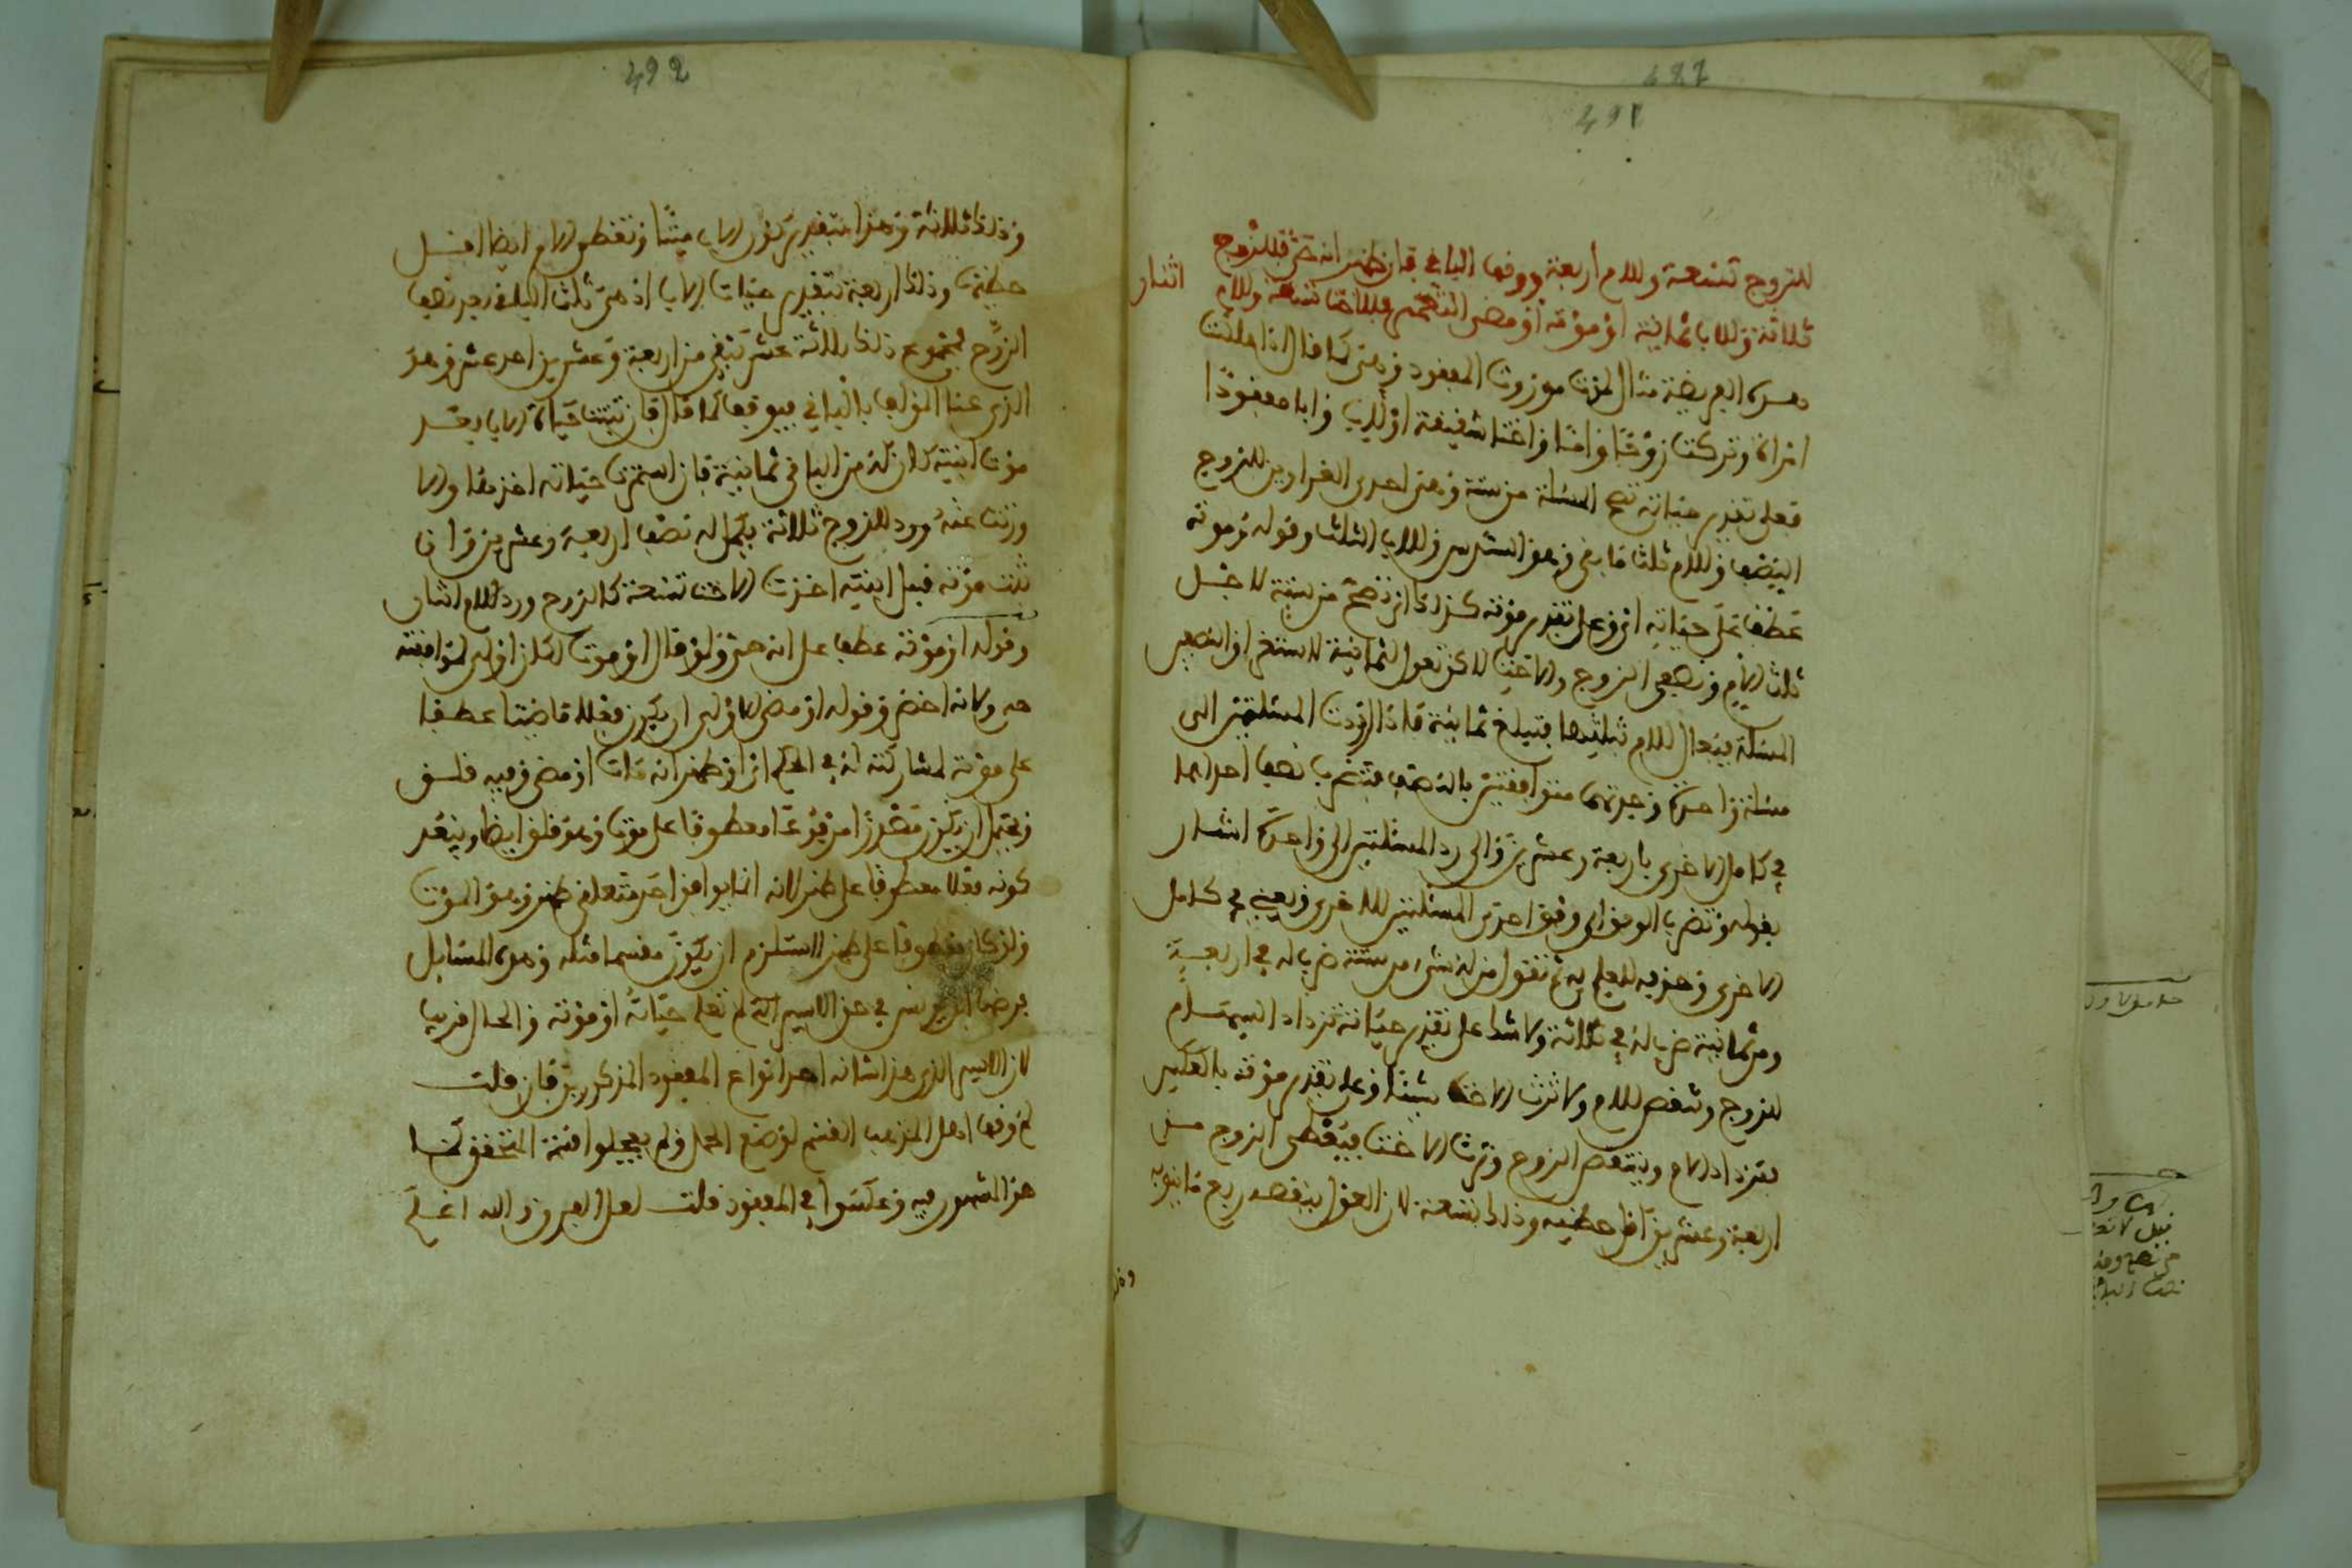 491
للزوج تسعة وللام اربعة ووقف الباقي فان ظهر انه حي فللزوج
ثلاثة وللاب ثمانية او موته او مضى التعمير فللاخت تسعة وللام
اثنان
هذه الفريضة مثال لمن موروث المفقود وهي كما قال اذا هلكت
امراة وتركت زوجا واما واختا شقيقة او لاب وابا مفقودا
فعلى تقدير حياته تصح المسئلة من ستة وهي احدى الغراوين للزوج
النصف وللام ثلث ما بقي وهو السدس وللاب الثلث وقوله وموته
عطف على حياته اي وعلى تقدير موته كذلك اي تصح من ستة لاجل
ثلث الام ونصفي الزوج والاخت لاكن تعول لثمانية لاستغراق النصفين
المسئلة فيعال للام بثلثها فتبلغ ثمانية فاذا اردت المسئلتين الى
مسئلة واحدة وجدتهما متوافقتين بالنصف فتضرب نصف احداهما
في كامل الاخرى باربعة وعشرين والى رد المسئلتين الى واحدة اشار
بقوله وتضرب الوفق اي وفق احدى المسئلتين للاخرى ويعني في كامل
الاخرى وحذفه للعلم به ثم تقول من له شيء من ستة ضرب له في اربعة
ومن ثمانية ضرب له في ثلاثة ولا شك على تقدير حياته تزداد السهام
للزوج وتنقص للام ولا ترث الاخت شيئا وعلى تقدير موته بالعكس
فتزداد الام وينتقص الزوج وترث الاخت فيعطى الزوج من
اربعة وعشرين اقل حظيه وذلك تسعة لان العول ينقصه ربع ما بيده
492
وذلك ثلاثة وهذا بتقدير كون الاب ميتا وتعطى الام ايضا اقل
حظيها وذلك اربعة بتقدير حياة الاب اذ هي ثلث الباقي بعد نصف
الزوج فمجموع ذلك ثلاثة عشر تبقى من اربعة وعشرين احد عشر وهو
الذي عنى المؤلف بالباقي فيوقف كما قال فان ثبتت حياة الاب بعد
موت ابنته كان له من الباقي ثمانية فان استمرت حياته اخذها والا
ورثت عنه ورد للزوج ثلاثة يكمل له نصف اربعة وعشرين وان
ثبت موته قبل ابنته اخذت الاخت تسعة كالزوج ورد للام اثنان
وقوله او موته عطف على انه حي ولو قال او موت لكان اولى لموافقته
حي ولانه اخصر وقوله او مضى الاولى ان يكون فعلا ماضيا عطفا
على موته لمشاركته له في الحكم اي او ظهر انه مات او مضى وفيه قلق
ويحتمل ان يكون مصدرا مرفوعا معطوفا على موت وهو قلق ايضا ويبعد
كونه فعلا معطوفا على ظهر لانه انما يوافق احد متعلقي ظهر وهو الموت
ولو كان معطوفا على ظهر لاستلزم ان يكون مقسما مثله وهذه المسائل
فرضها ابن يونس في حق الاسير الذي لم تعلم حياته او موته والحال قريب
لان الاسير الذي هذا شانه احد انواع المفقود المذكورين فان قلت
لم وقف اهل المذهب القسم لوضع الحمل ولم يعجلوا قسمة المتحقق كما
هو المشهور فيه وعكسوا في المفقود قلت لعل الفرق والله اعلم